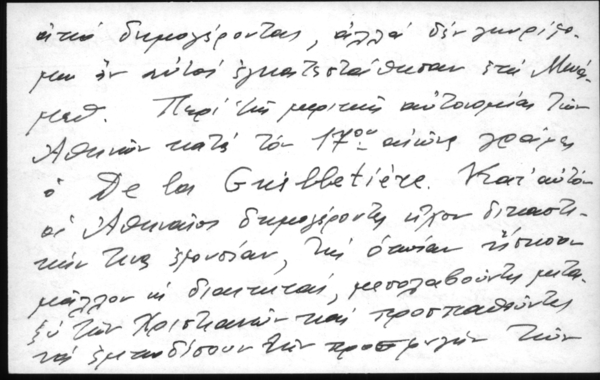 ἀπὸ δημογέροντας, ἀλλὰ δὲν γνωρίζο-
μεν ἂν αὐτοὶ ἐγκατεστάθησαν
Περὶ τῆς μερικῆς αὐτονομίας τῶν
Ἀθηνῶν κατὰ τὸν 17ον αἰῶνα γράφει
ὁ De la Guilletière. Κατ' αὐτὸν
οἱ Ἀθηναῖοι δημογέροντες εἶχον δικαστι-
κήν τινα ἐξουσίαν, τὴν ὁποίαν ἤσκουν
μᾶλλον ὡς διαιτηταί, μεσολαβοῦντες μετα-
ξὺ τῶν Χριστιανῶν καὶ προσπαθοῦντες
νὰ ἐμποδίσουν τὴν προσφυγὴν τῶν